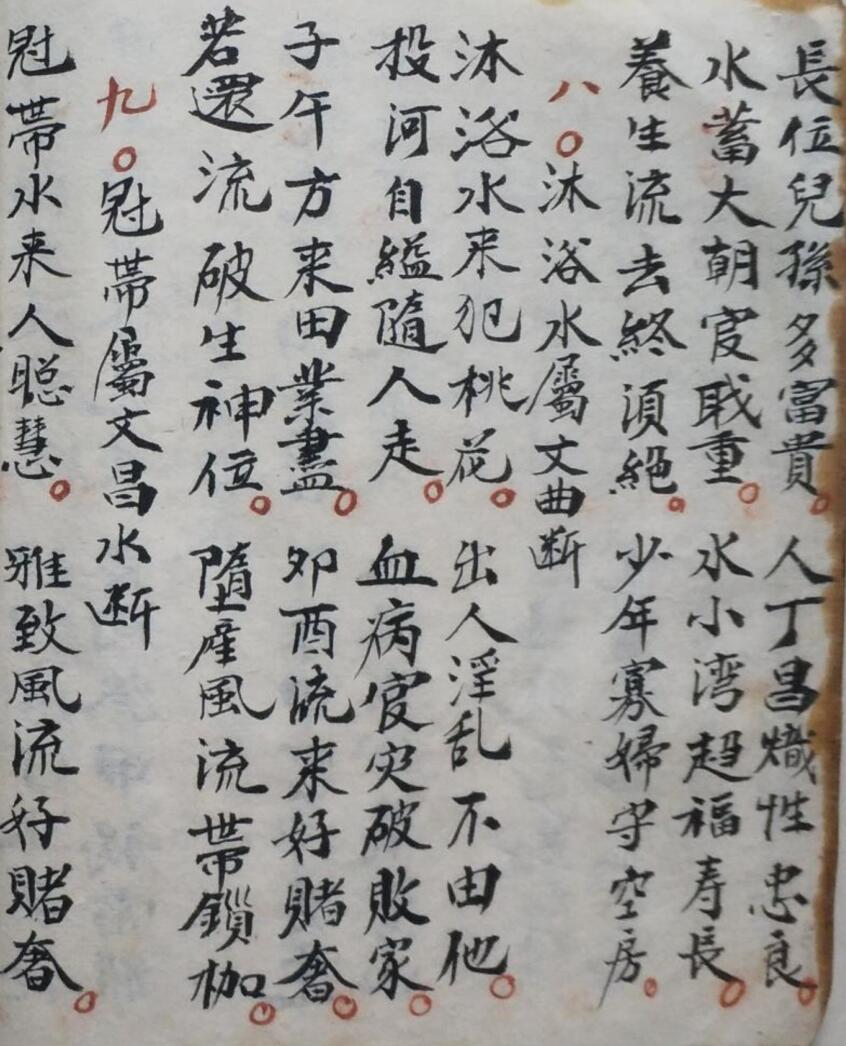 長位兒孫多富貴。人丁昌熾性忠良。
水蓄大朝官職重。水小湾超福寿長。
養生流去終須絕。少年寡婦守空房。
八。沐浴水屬文曲断
沐浴水来犯桃花。出人淫乱不由他。
投河自縊隨人走。血病官灾破敗家。
子午方来田業盡。卯酉流来好賭奢。
若還流破生神位。墮產風流帶鎖枷。
九。冠帶屬文昌水断
冠帶水来人聪慧。雅致風流好賭奢。